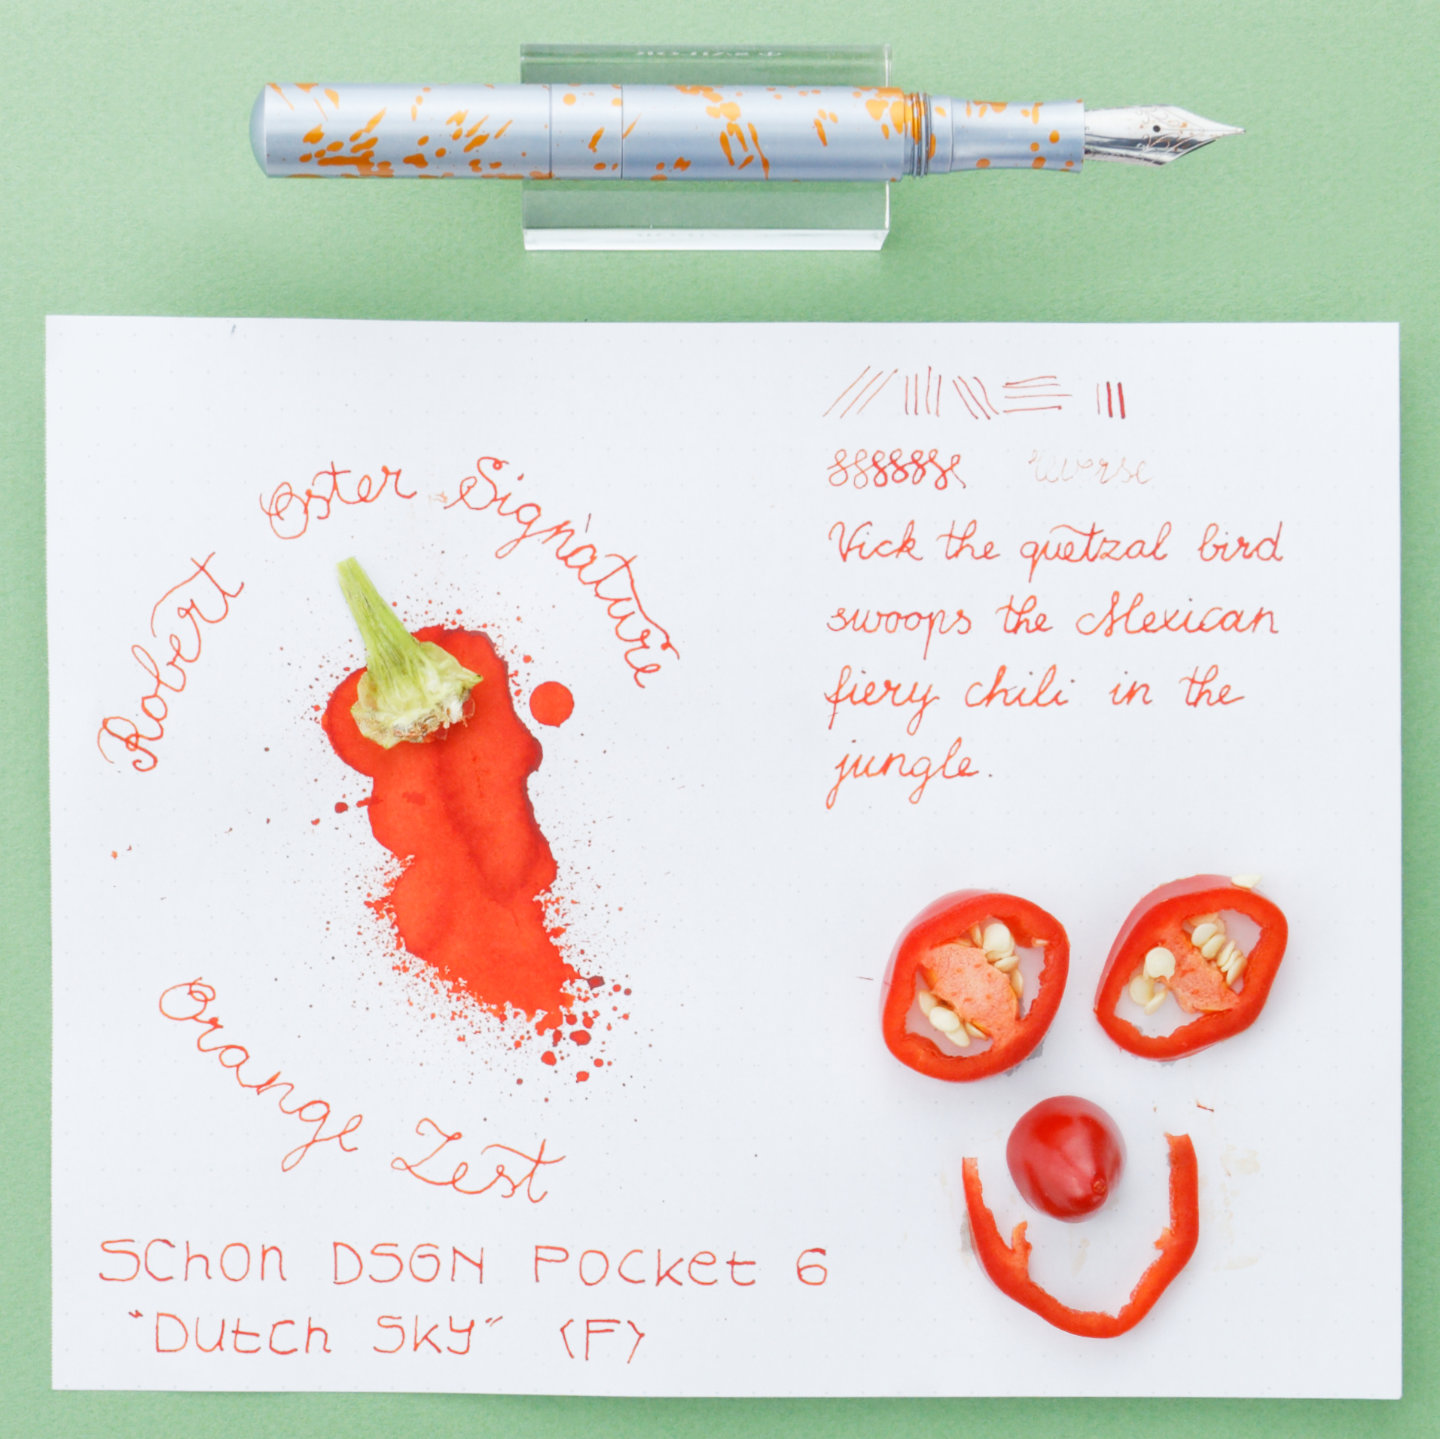 Robert Oster Signature
Orange Zest
Schon DSGN Pocket 6
"Dutch Sky" (F)
reverse
Vick the quetzal bird
swoops the Mexican
fiery chili in the
jungle.